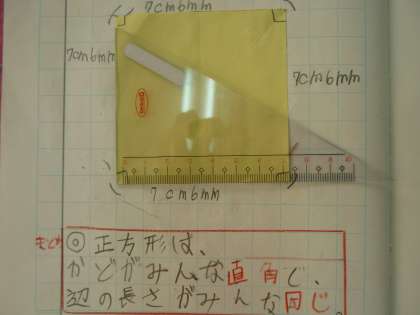 7cm6mm
7cm6mm
7cm6mm
7cm6mm
まとめ
◎正方形は、
かどがみんな直角で、
辺の長さがみんな同じ。